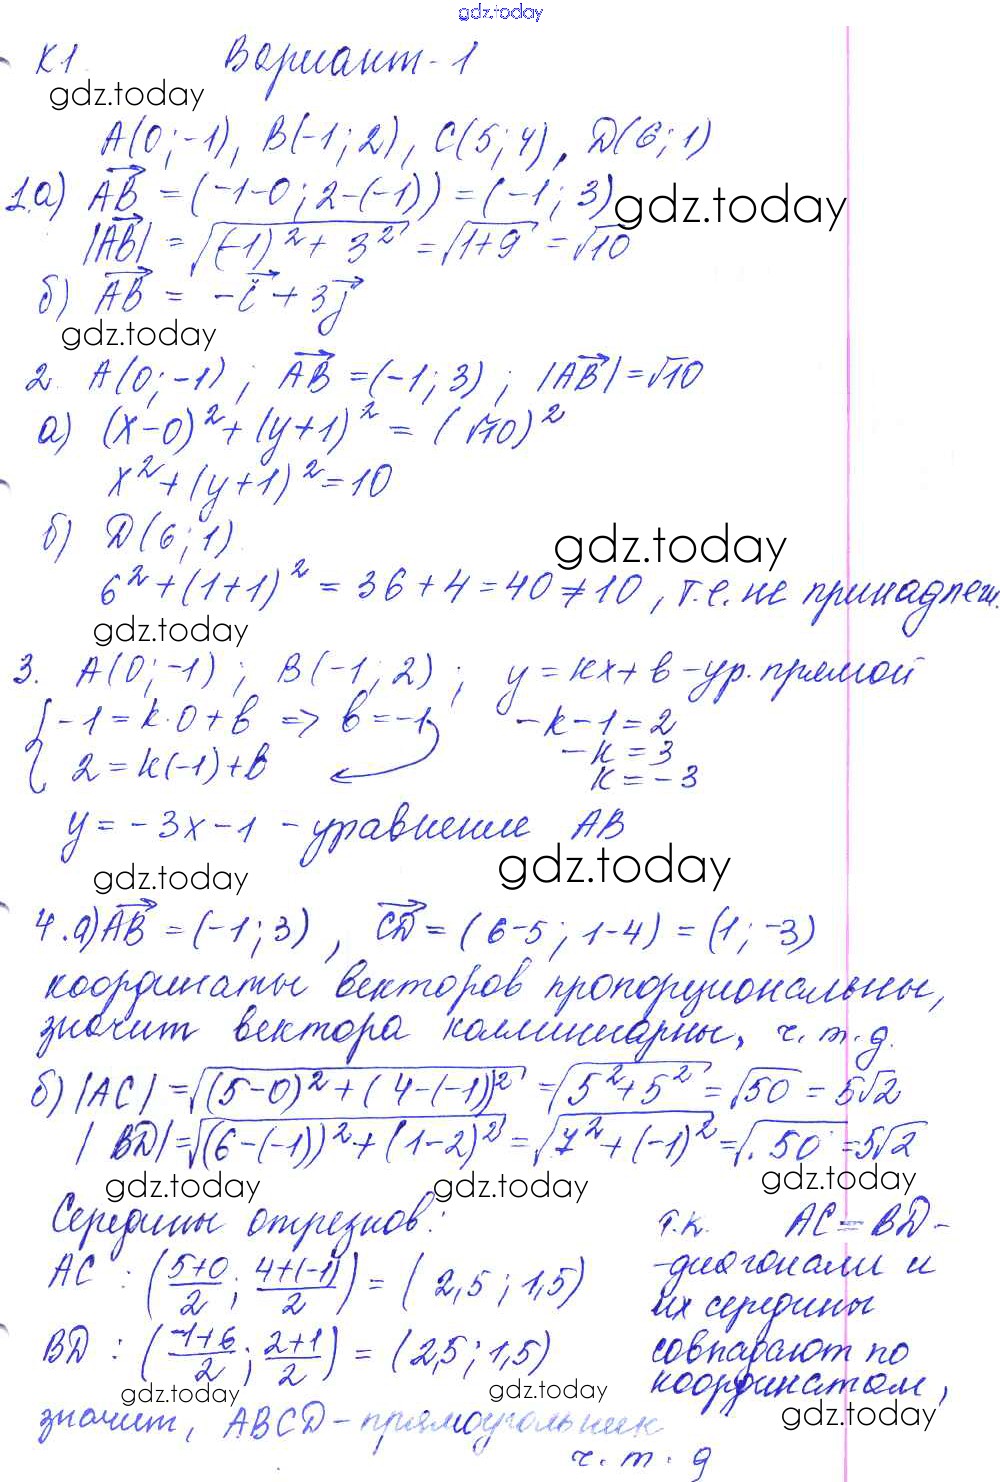 gdz.today
К1 Вариант-1
gdz.today
A(0;-1), B(-1;2), C(5;4), D(6;1)
1.а) AB⃗ = (-1-0; 2-(-1)) = (-1; 3) gdz.today
|AB⃗| = √((-1)² + 3²) = √(1+9) = √10
б) AB⃗ = -i⃗ + 3j⃗
gdz.today
2. A(0;-1); AB⃗ = (-1; 3); |AB⃗| = √10
а) (x-0)² + (y+1)² = (√10)²
x² + (y+1)² = 10
б) D(6;1)
gdz.today
6² + (1+1)² = 36 + 4 = 40 ≠ 10, т.е. не принадлеж.
gdz.today
3. A(0;-1); B(-1;2); y = kx + b - ур. прямой
{ -1 = k·0 + b => b = -1 -k-1=2
2 = k(-1) + b -k = 3
k = -3
y = -3x - 1 - уравнение AB
gdz.today gdz.today
4.а) AB⃗ = (-1; 3), CD⃗ = (6-5; 1-4) = (1; -3)
координаты векторов пропорциональны,
значит вектора коллинеарны, ч.т.д.
б) |AC| = √((5-0)² + (4-(-1))²) = √(5²+5²) = √50 = 5√2
|BD| = √((6-(-1))² + (1-2)²) = √(7² + (-1)²) = √50 = 5√2
gdz.today gdz.today gdz.today
Середины отрезков: т.к. AC = BD -
AC : ((5+0)/2; (4+(-1))/2) = (2,5; 1,5) -диагонали и
их середины
BD : ((-1+6)/2; (2+1)/2) = (2,5; 1,5) совпадают по
координатам,
gdz.today gdz.today
значит, ABCD - прямоугольник gdz.today
ч.т.д